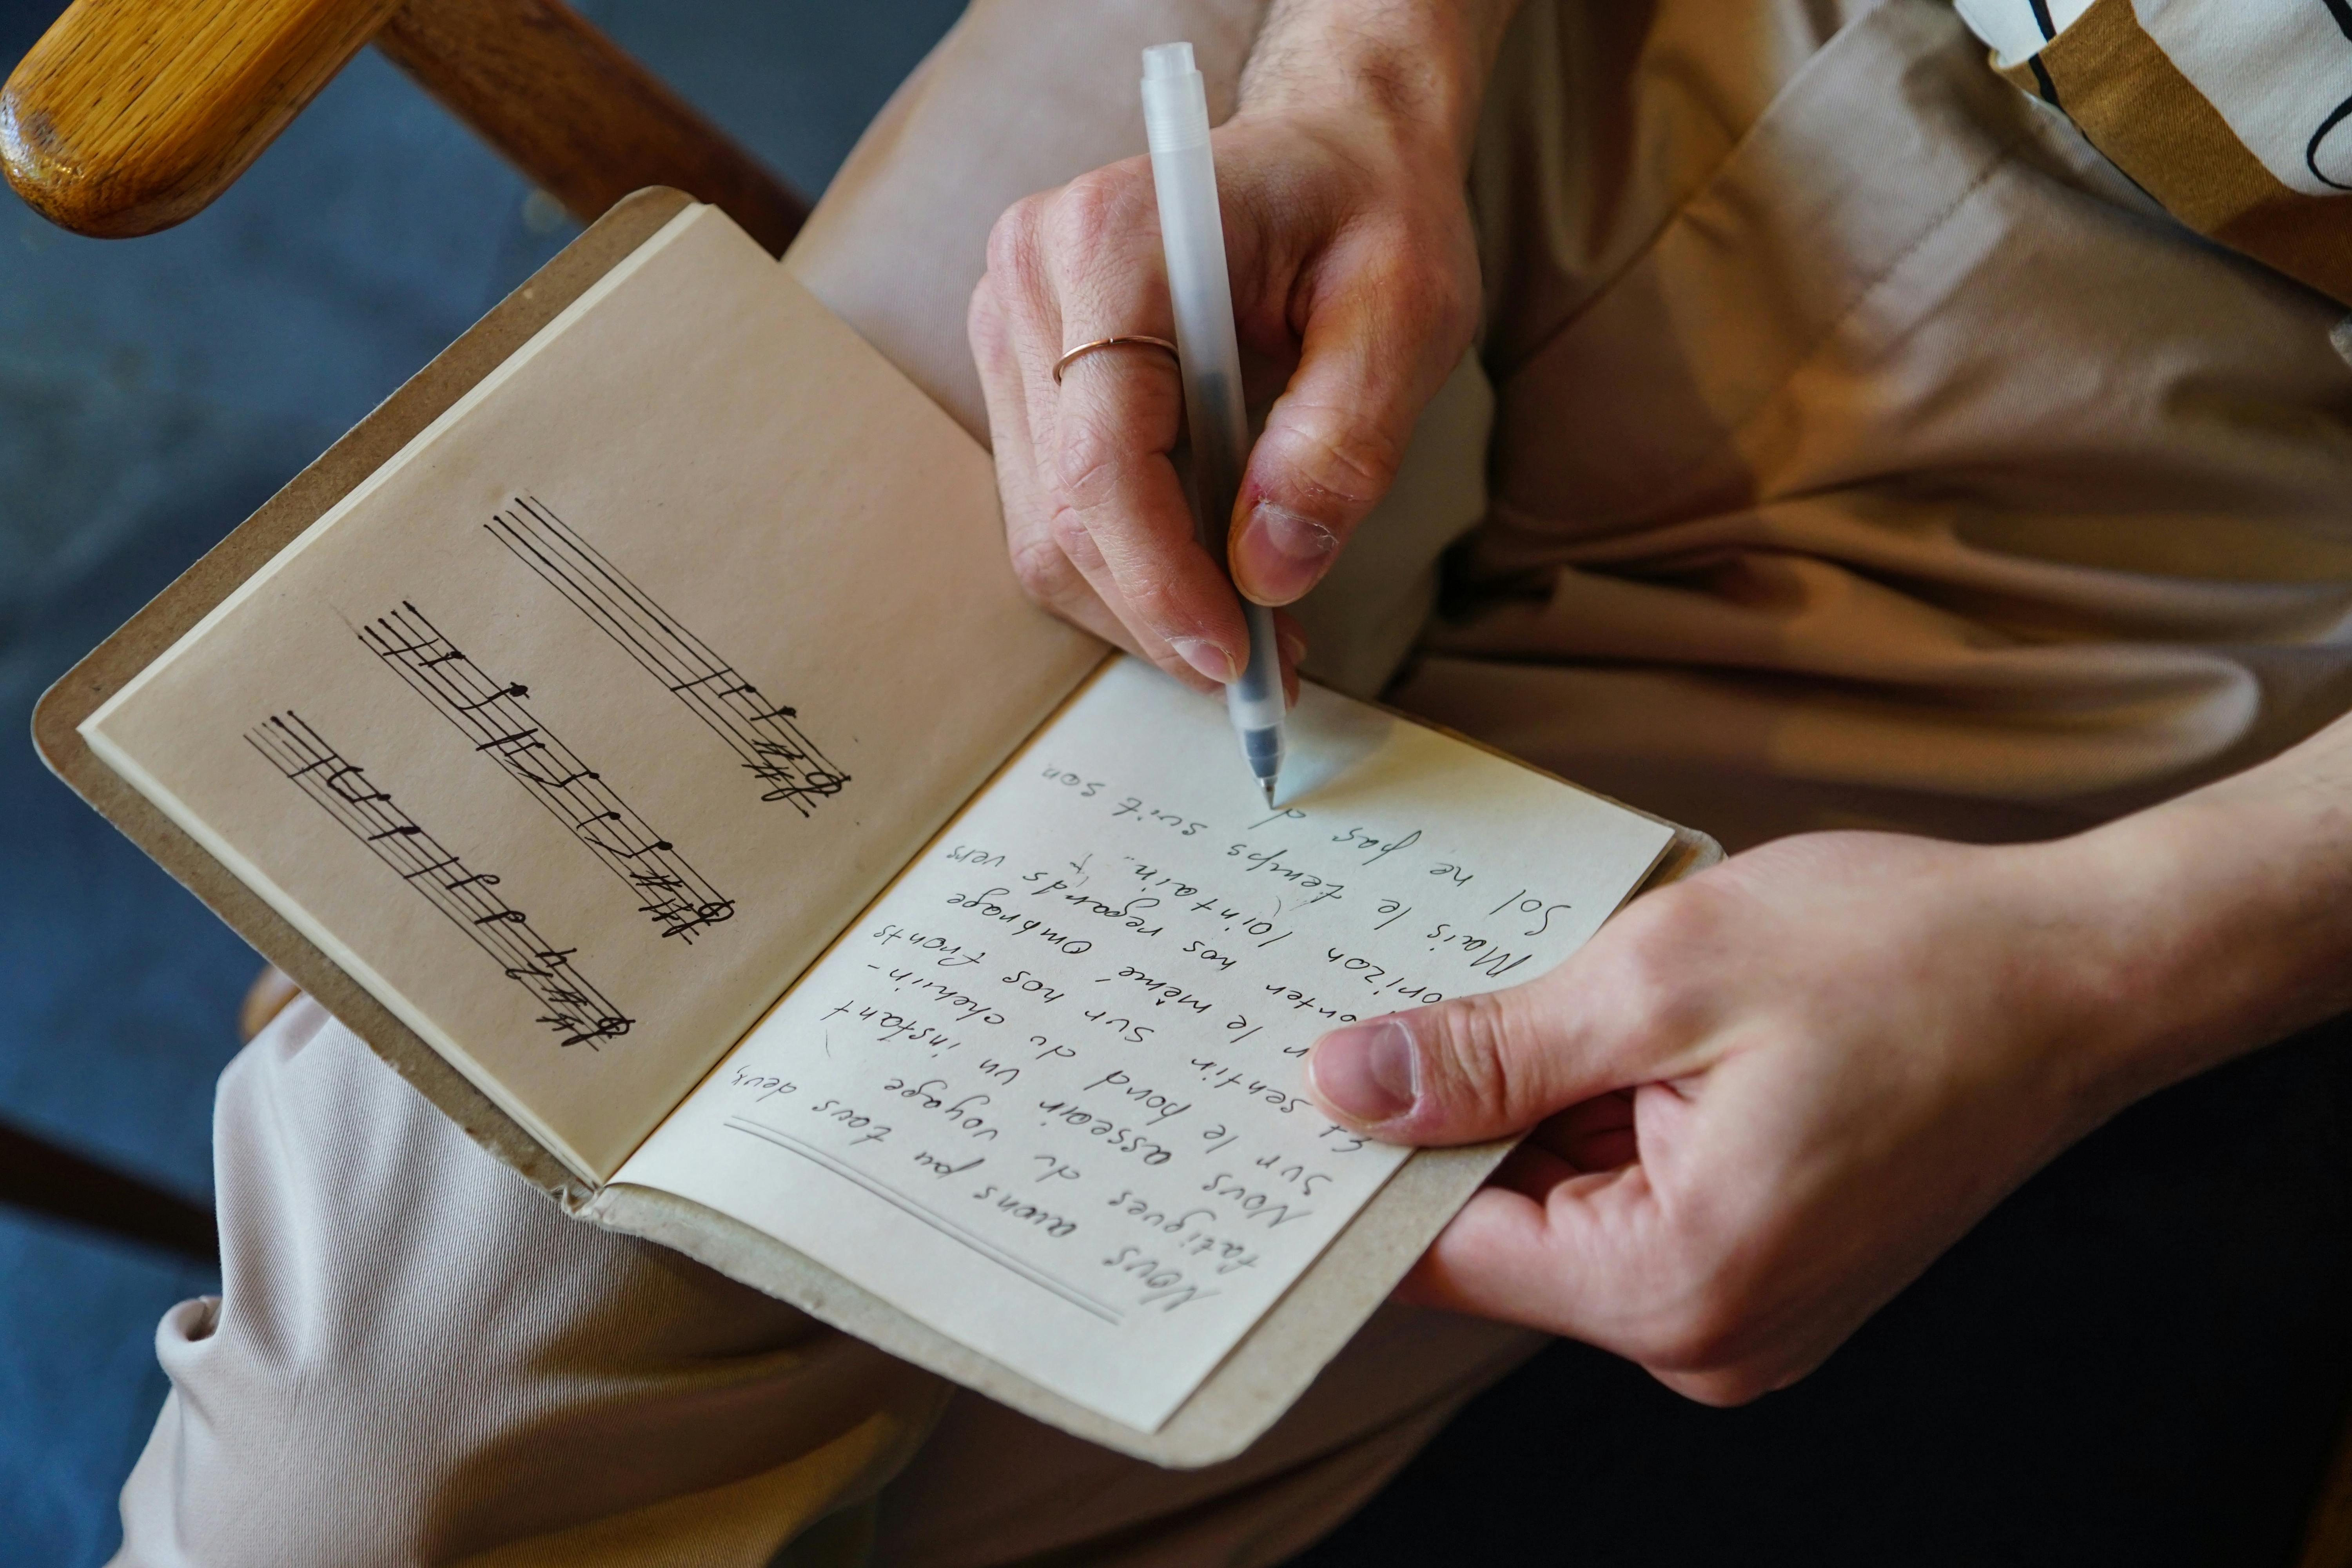 Nous avons pu tous deux,
fatigues du voyage
Nous asseoir un instant
Sur le pond du chemin-
Et sentir sur nos fronts
le même ombrage
nos regards vers
horizon lointain...
Mais le temps suit son
Sol ne pas d